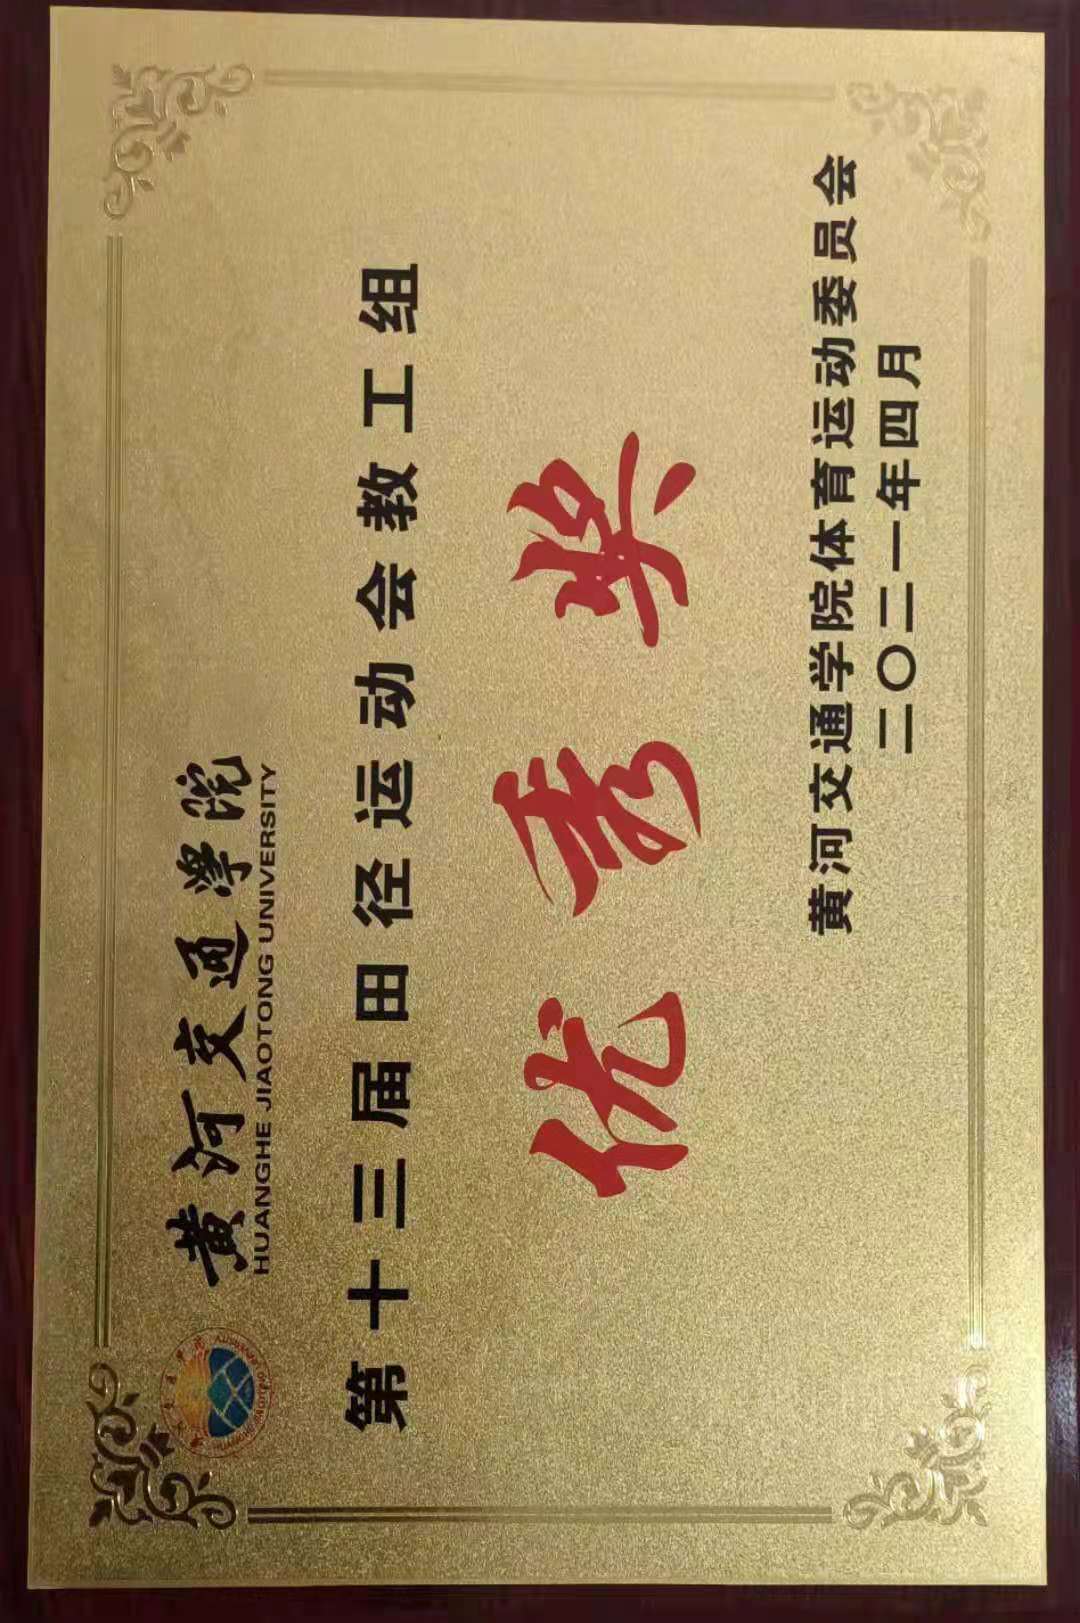 黄河交通学院
HUANGHE JIAOTONG UNIVERSITY
第十三届田径运动会教工组
优秀奖
黄河交通学院体育运动委员会
二〇二一年四月